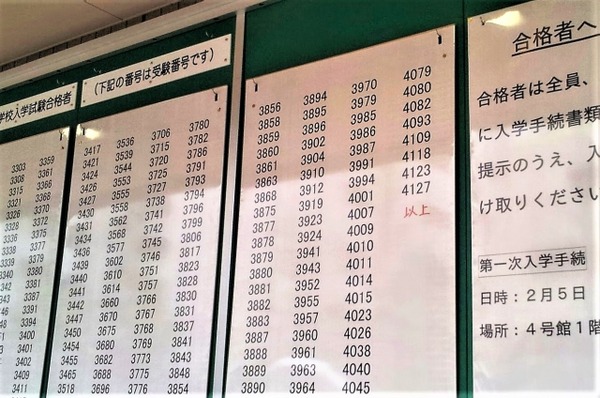 学校入学試験合格者
(下記の番号は受験番号です)
3303 3359
3308 3361
3315 3366
3321 3368
3326 3370
3328 3372
3336 3375
3338 3377
3339 3379
3340 3380
3342 3381
3343 3387
3391
3394
3400
3401
3402
3409
3411
3417 3536 3706 3780
3421 3539 3715 3782
3424 3544 3720 3786
3426 3553 3725 3791
3427 3555 3737 3793
3430 3558 3738 3794
3431 3562 3741 3796
3434 3568 3742 3799
3436 3577 3745 3806
3439 3602 3746 3817
3440 3610 3751 3823
3441 3614 3757 3828
3442 3660 3766 3830
3447 3670 3767 3831
3450 3675 3768 3837
3454 3680 3769 3841
3455 3682 3773 3843
3468 3693 3775 3848
3518 3696 3776 3854
3856 3894 3970 4079
3858 3895 3979 4080
3859 3896 3985 4082
3860 3902 3986 4093
3861 3904 3987 4109
3863 3910 3991 4118
3868 3912 3994 4123
3875 3919 4001 4127
3877 3923 4007 以上
3878 3924 4009
3879 3941 4010
3880 3943 4011
3881 3952 4014
3882 3955 4015
3883 3957 4023
3887 3960 4026
3888 3961 4038
3889 3963 4040
3890 3964 4045
合格者へ
合格者は全員、
に入学手続書類
提示のうえ、入
け取りください
第一次入学手続
日時：2月5日
場所：4号館1階